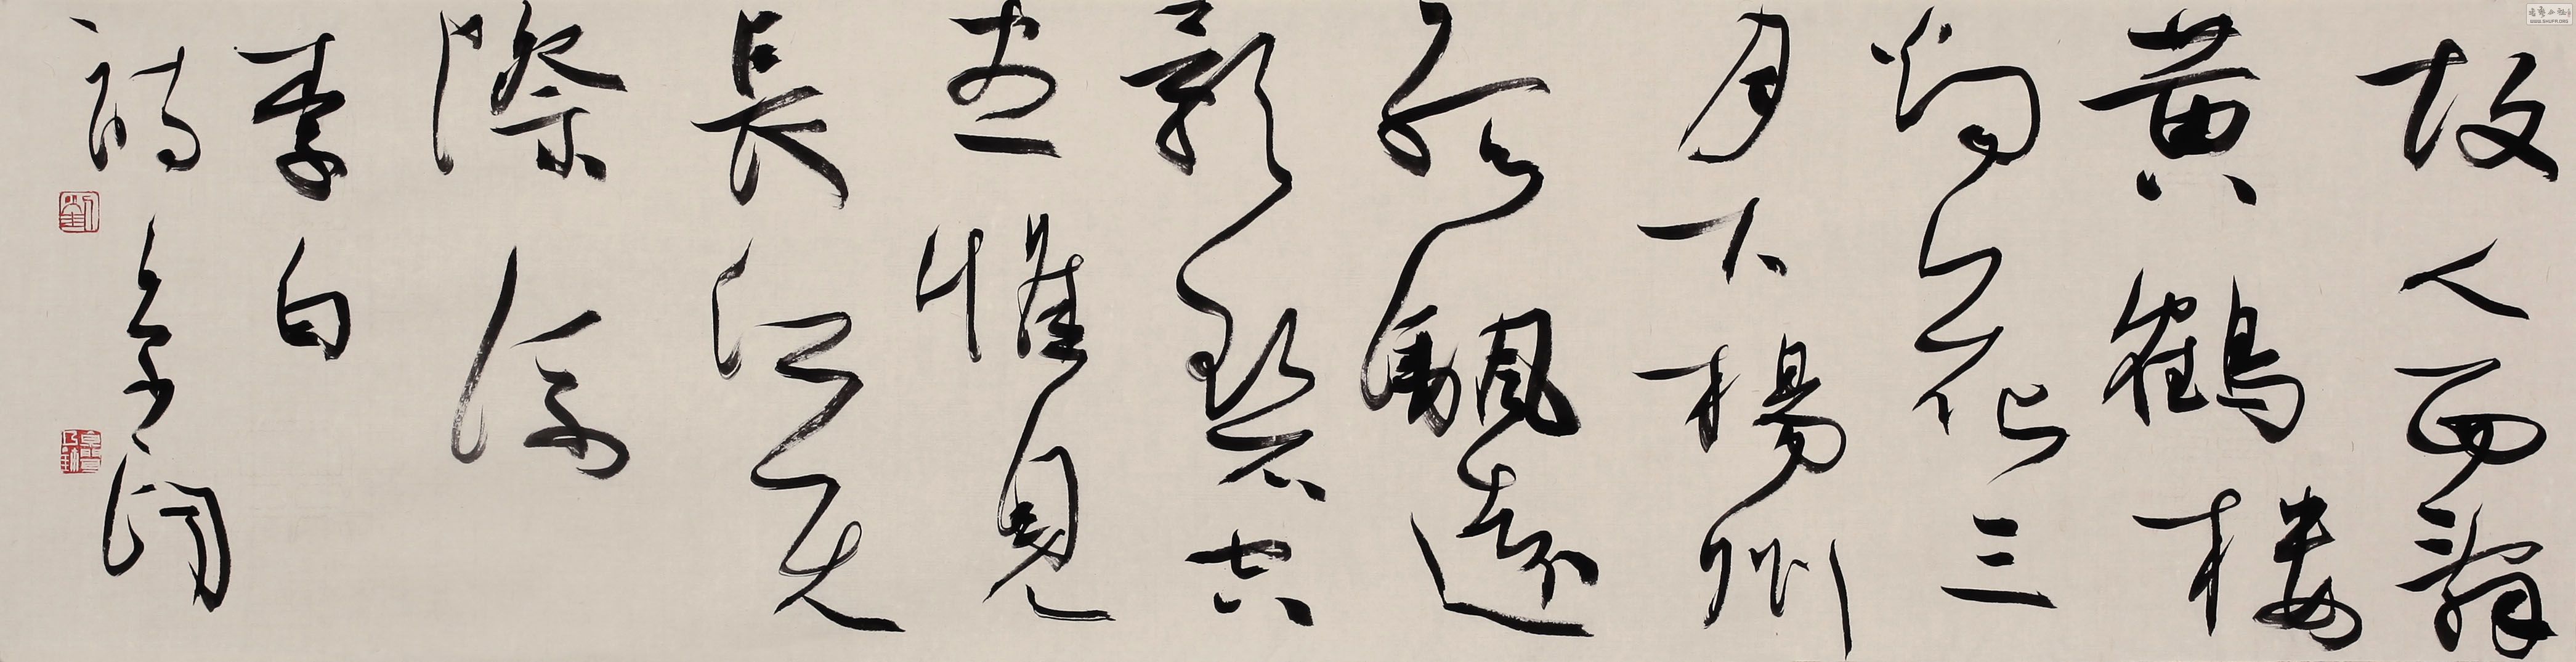 故人西辭
黄鶴樓
烟花三
月下楊州
孤颿遠
影碧空
盡惟見
長江天
際流
李白
詩